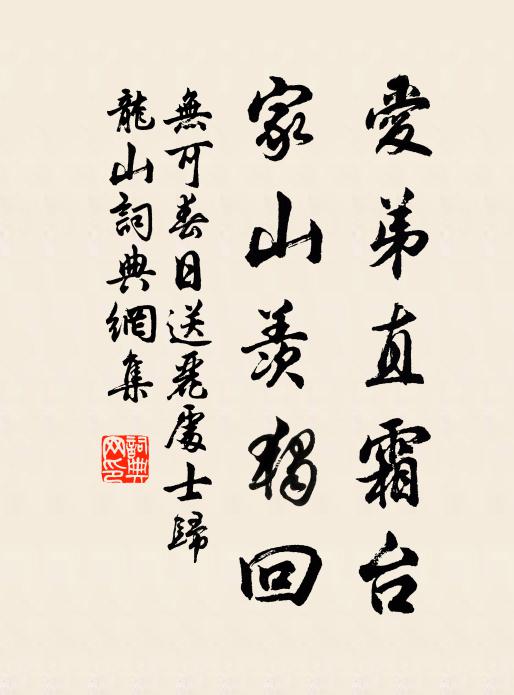 愛弟直霜台
家山羨獨回
無可春日送麗處士歸
龍山詞典網集
詞典网印